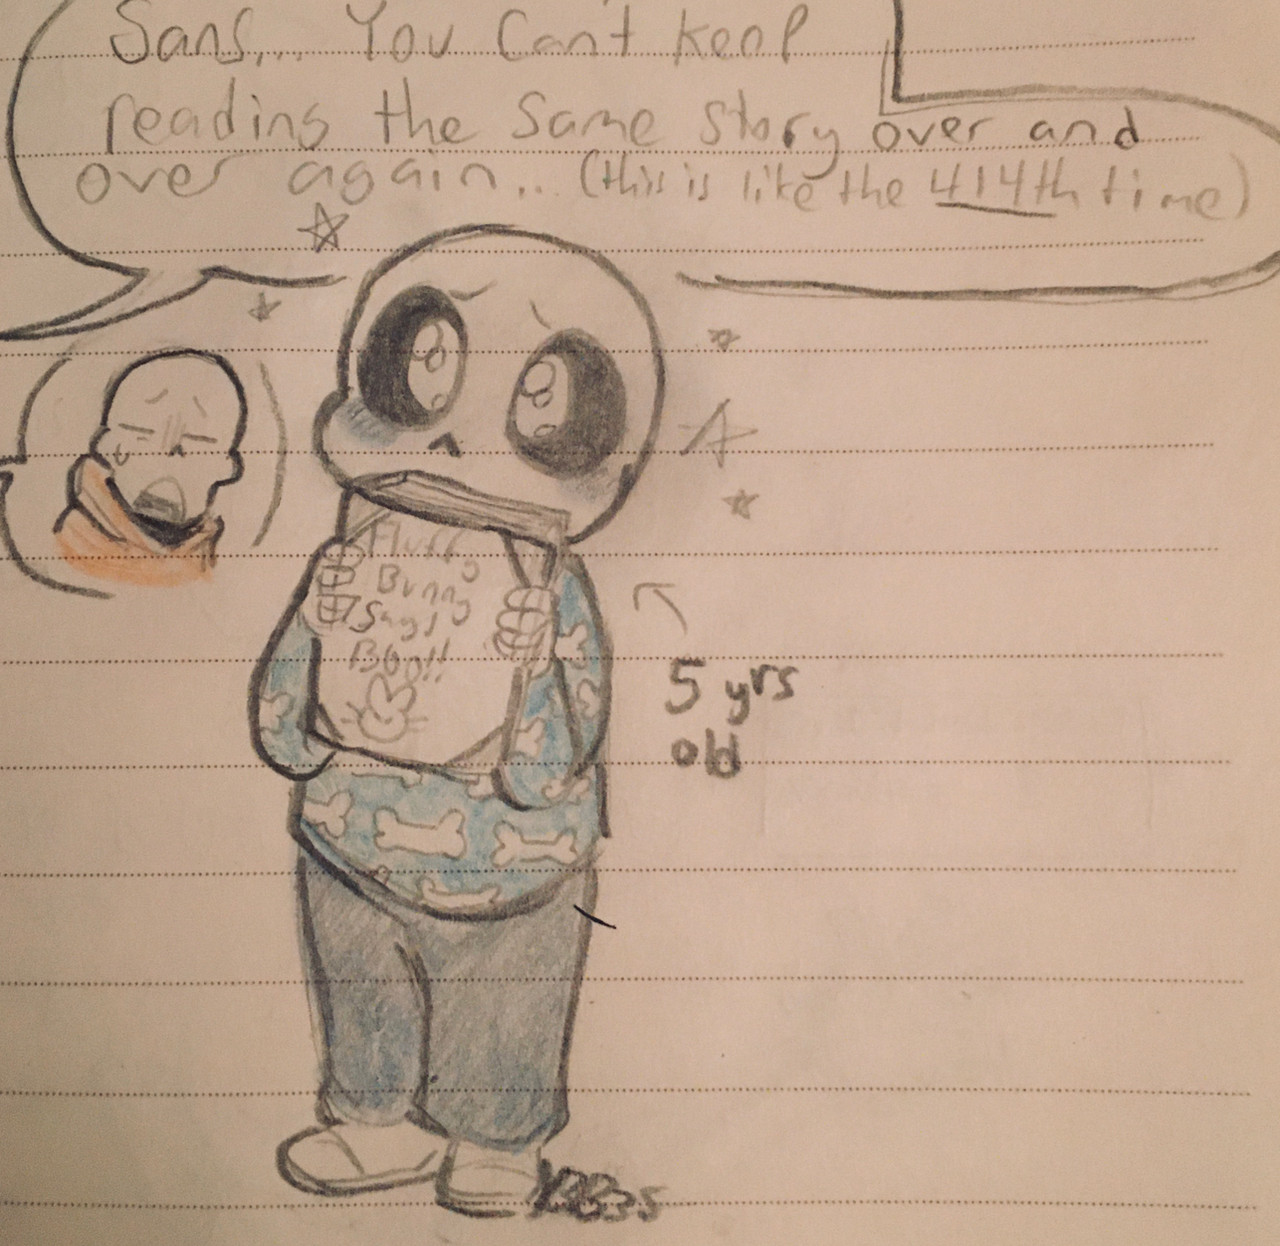 Sans... You Can't keep
reading the same story over and
over again... (this is like the 414th time)
Fluffy
Bunny
Says
Boo!!
5 yrs
old